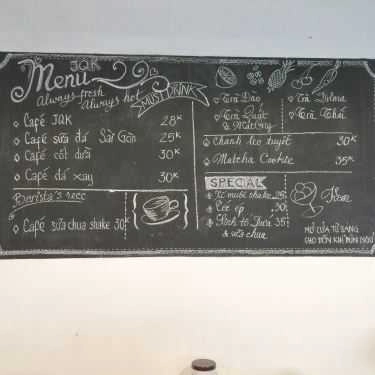 JQK
Menu
Always fresh
Always hot
MUST DRINK
Café JQK 28K
Café sữa đá Sài Gòn 25K
Café cốt dừa 30K
Café đá xay 30K
Barista's recc
Café sữa chua shake 30K
Trà Đào
Trà Quất
& Mật Ong
Trà Dilmah
Trà Thái
Chanh leo tuyết 30K
Matcha Cookie 35K
SPECIAL
Xí muội shake 25
Cốt ép 30
Sinh tố Dưa 35
& sữa chua
Kem
MỞ CỬA TỪ SÁNG
CHO ĐẾN KHI BÙN NGỦ